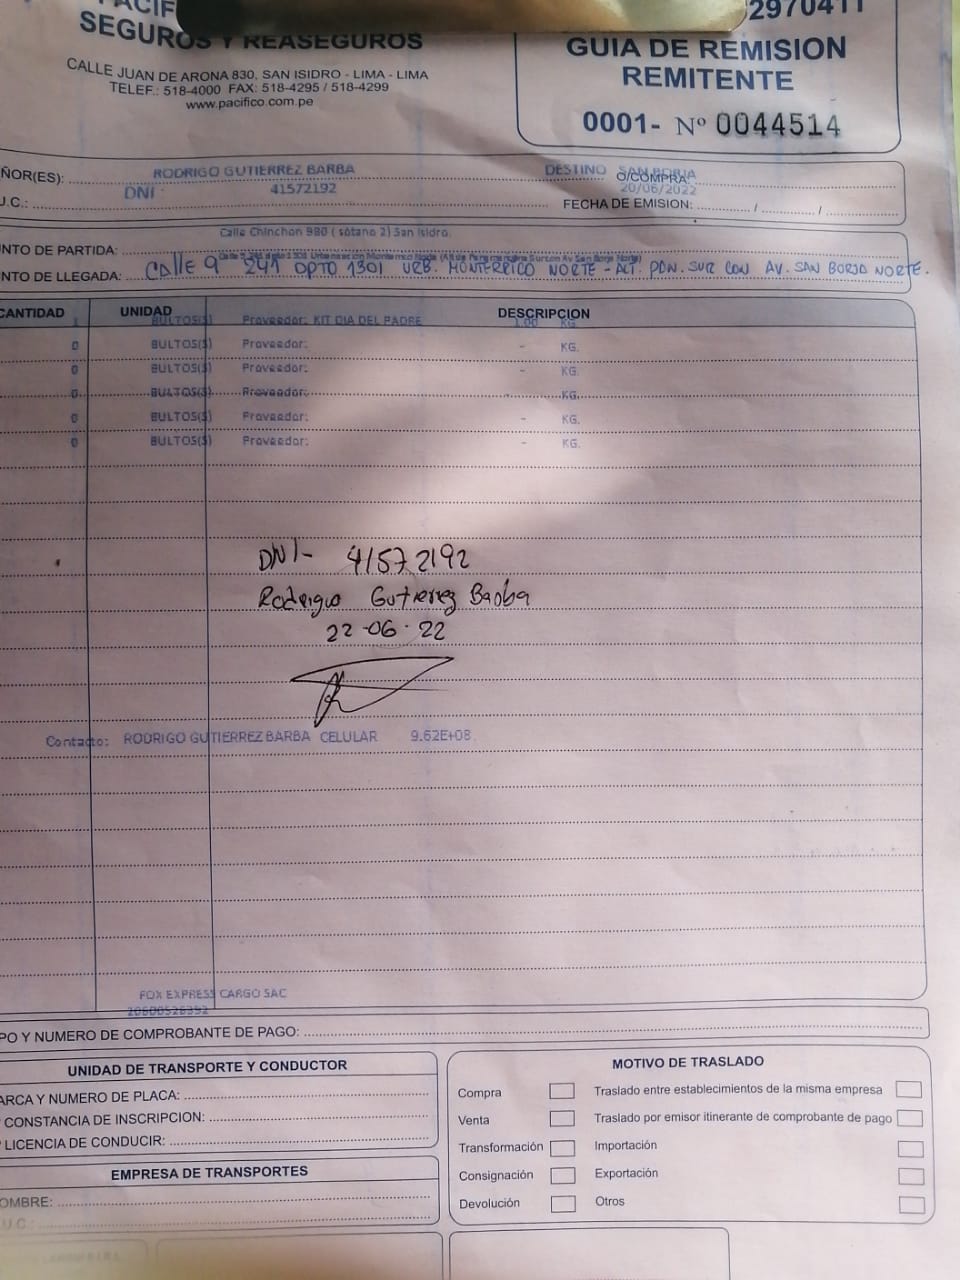 PACIF
SEGUROS Y REASEGUROS
CALLE JUAN DE ARONA 830, SAN ISIDRO - LIMA - LIMA
TELEF.: 518-4000 FAX: 518-4295 / 518-4299
www.pacifico.com.pe
2970411
GUIA DE REMISION
REMITENTE
0001- Nº 0044514
ÑOR(ES): RODRIGO GUTIERREZ BARBA
DESTINO SAN BORJA
O/COMPRA
U.C.: DNI : 41572192
20/06/2022
FECHA DE EMISION: / /
Calle Chinchon 980 ( sótano 2) San Isidro.
NTO DE PARTIDA:
NTO DE LLEGADA: CALLE 9 241 DPTO 1301 URB. MONTERRICO NORTE - ALT. PAN. SUR CON AV. SAN BORJA NORTE.
CANTIDAD UNIDAD DESCRIPCION
BULTOS(S) Proveedor: KIT DIA DEL PADRE 1.00 KG
0 BULTOS(S) Proveedor: - KG.
0 BULTOS(S) Proveedor: - KG.
0 BULTOS(S) Proveedor: - KG.
0 BULTOS(S) Proveedor: - KG.
0 BULTOS(S) Proveedor: - KG.
DNI- 41572192
Rodrigo Gutierrez Barba
22-06-22
Contacto: RODRIGO GUTIERREZ BARBA CELULAR 9.62E+08
FOX EXPRESS CARGO SAC
20600526392
PO Y NUMERO DE COMPROBANTE DE PAGO:
UNIDAD DE TRANSPORTE Y CONDUCTOR
ARCA Y NUMERO DE PLACA:
CONSTANCIA DE INSCRIPCION:
LICENCIA DE CONDUCIR:
EMPRESA DE TRANSPORTES
OMBRE:
U.C.:
MOTIVO DE TRASLADO
Compra Traslado entre establecimientos de la misma empresa
Venta Traslado por emisor itinerante de comprobante de pago
Transformación Importación
Consignación Exportación
Devolución Otros